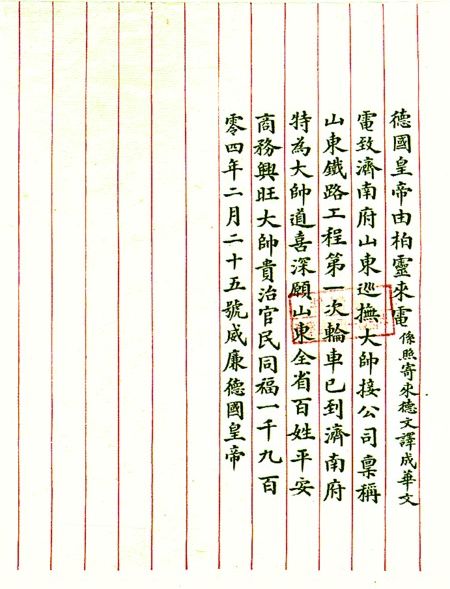 德國皇帝由柏靈來電係照寄來德文譯成華文
電致濟南府山東巡撫大帥接公司稟稱
山東鐵路工程第一次輪車已到濟南府
特為大帥道喜深願山東全省百姓平安
商務興旺大帥貴治官民同福一千九百
零四年二月二十五號威廉德國皇帝